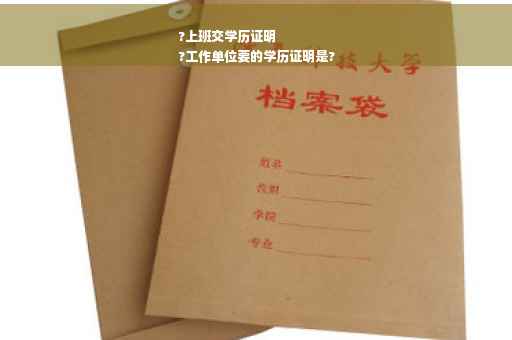 ?上班交学历证明
?工作单位要的学历证明是?
技大学
档案袋
姓名
学院
专业